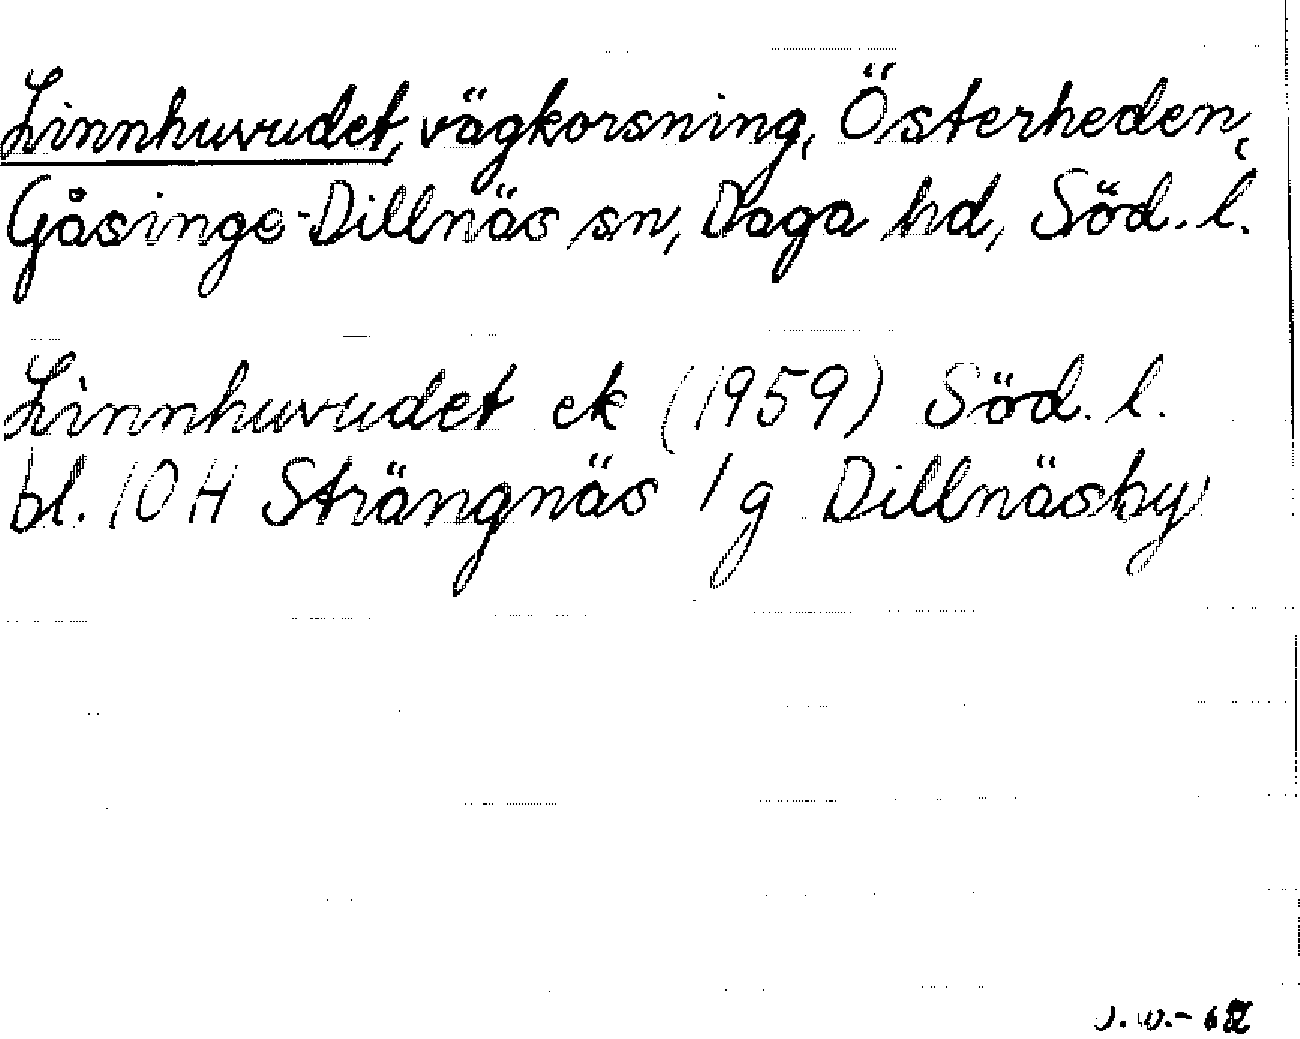 Linnhuvudet, vägkorsning, Österheden,
Gåsinge-Dillnäs sn, Daga hd, Söd. l.
Linnhuvudet ek (1959) Söd. l.
bl. 10 H Strängnäs 1 g Dillnäsby